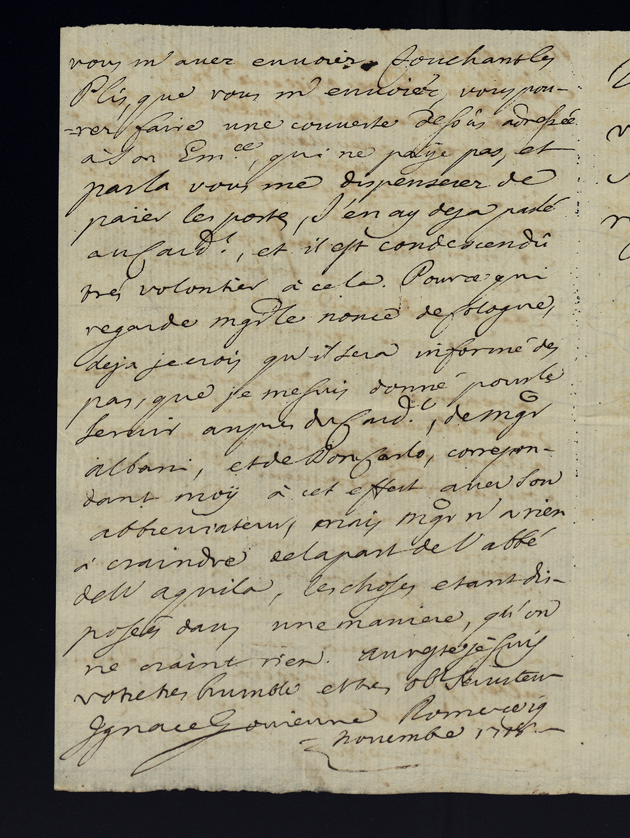 vous m'avez envoiéz. Touchant les
Plis, que vous m'envoiéz, vous pou-
-rez faire une couverte dessûs adressée
à Son Em.ce, qui ne païe pas, et
par la vous me dispenserez de
païer les ports, J'en ay deja parlé
au Card.l, et il est condescendû
tres volontier à cela. Pour ce qui
regarde mgr le nonce de Cologne,
deja je crois qu'il sera informé des
pas, que je me suis donné pour le
servir aupres du Card.l, de mgr
albani, et de Don Carlo, correspon-
dant moÿ à cet effect avec son
abbreviateur, mais mgr n'a rien
à craindre de la part de l'abbé
dell' aquila, les choses etant dis-
posées dans une maniere, qu'on
ne craint rien. au reste je suis
votre tres humble et tres ob. serviteur
Ignace Rome ce 19
novembre